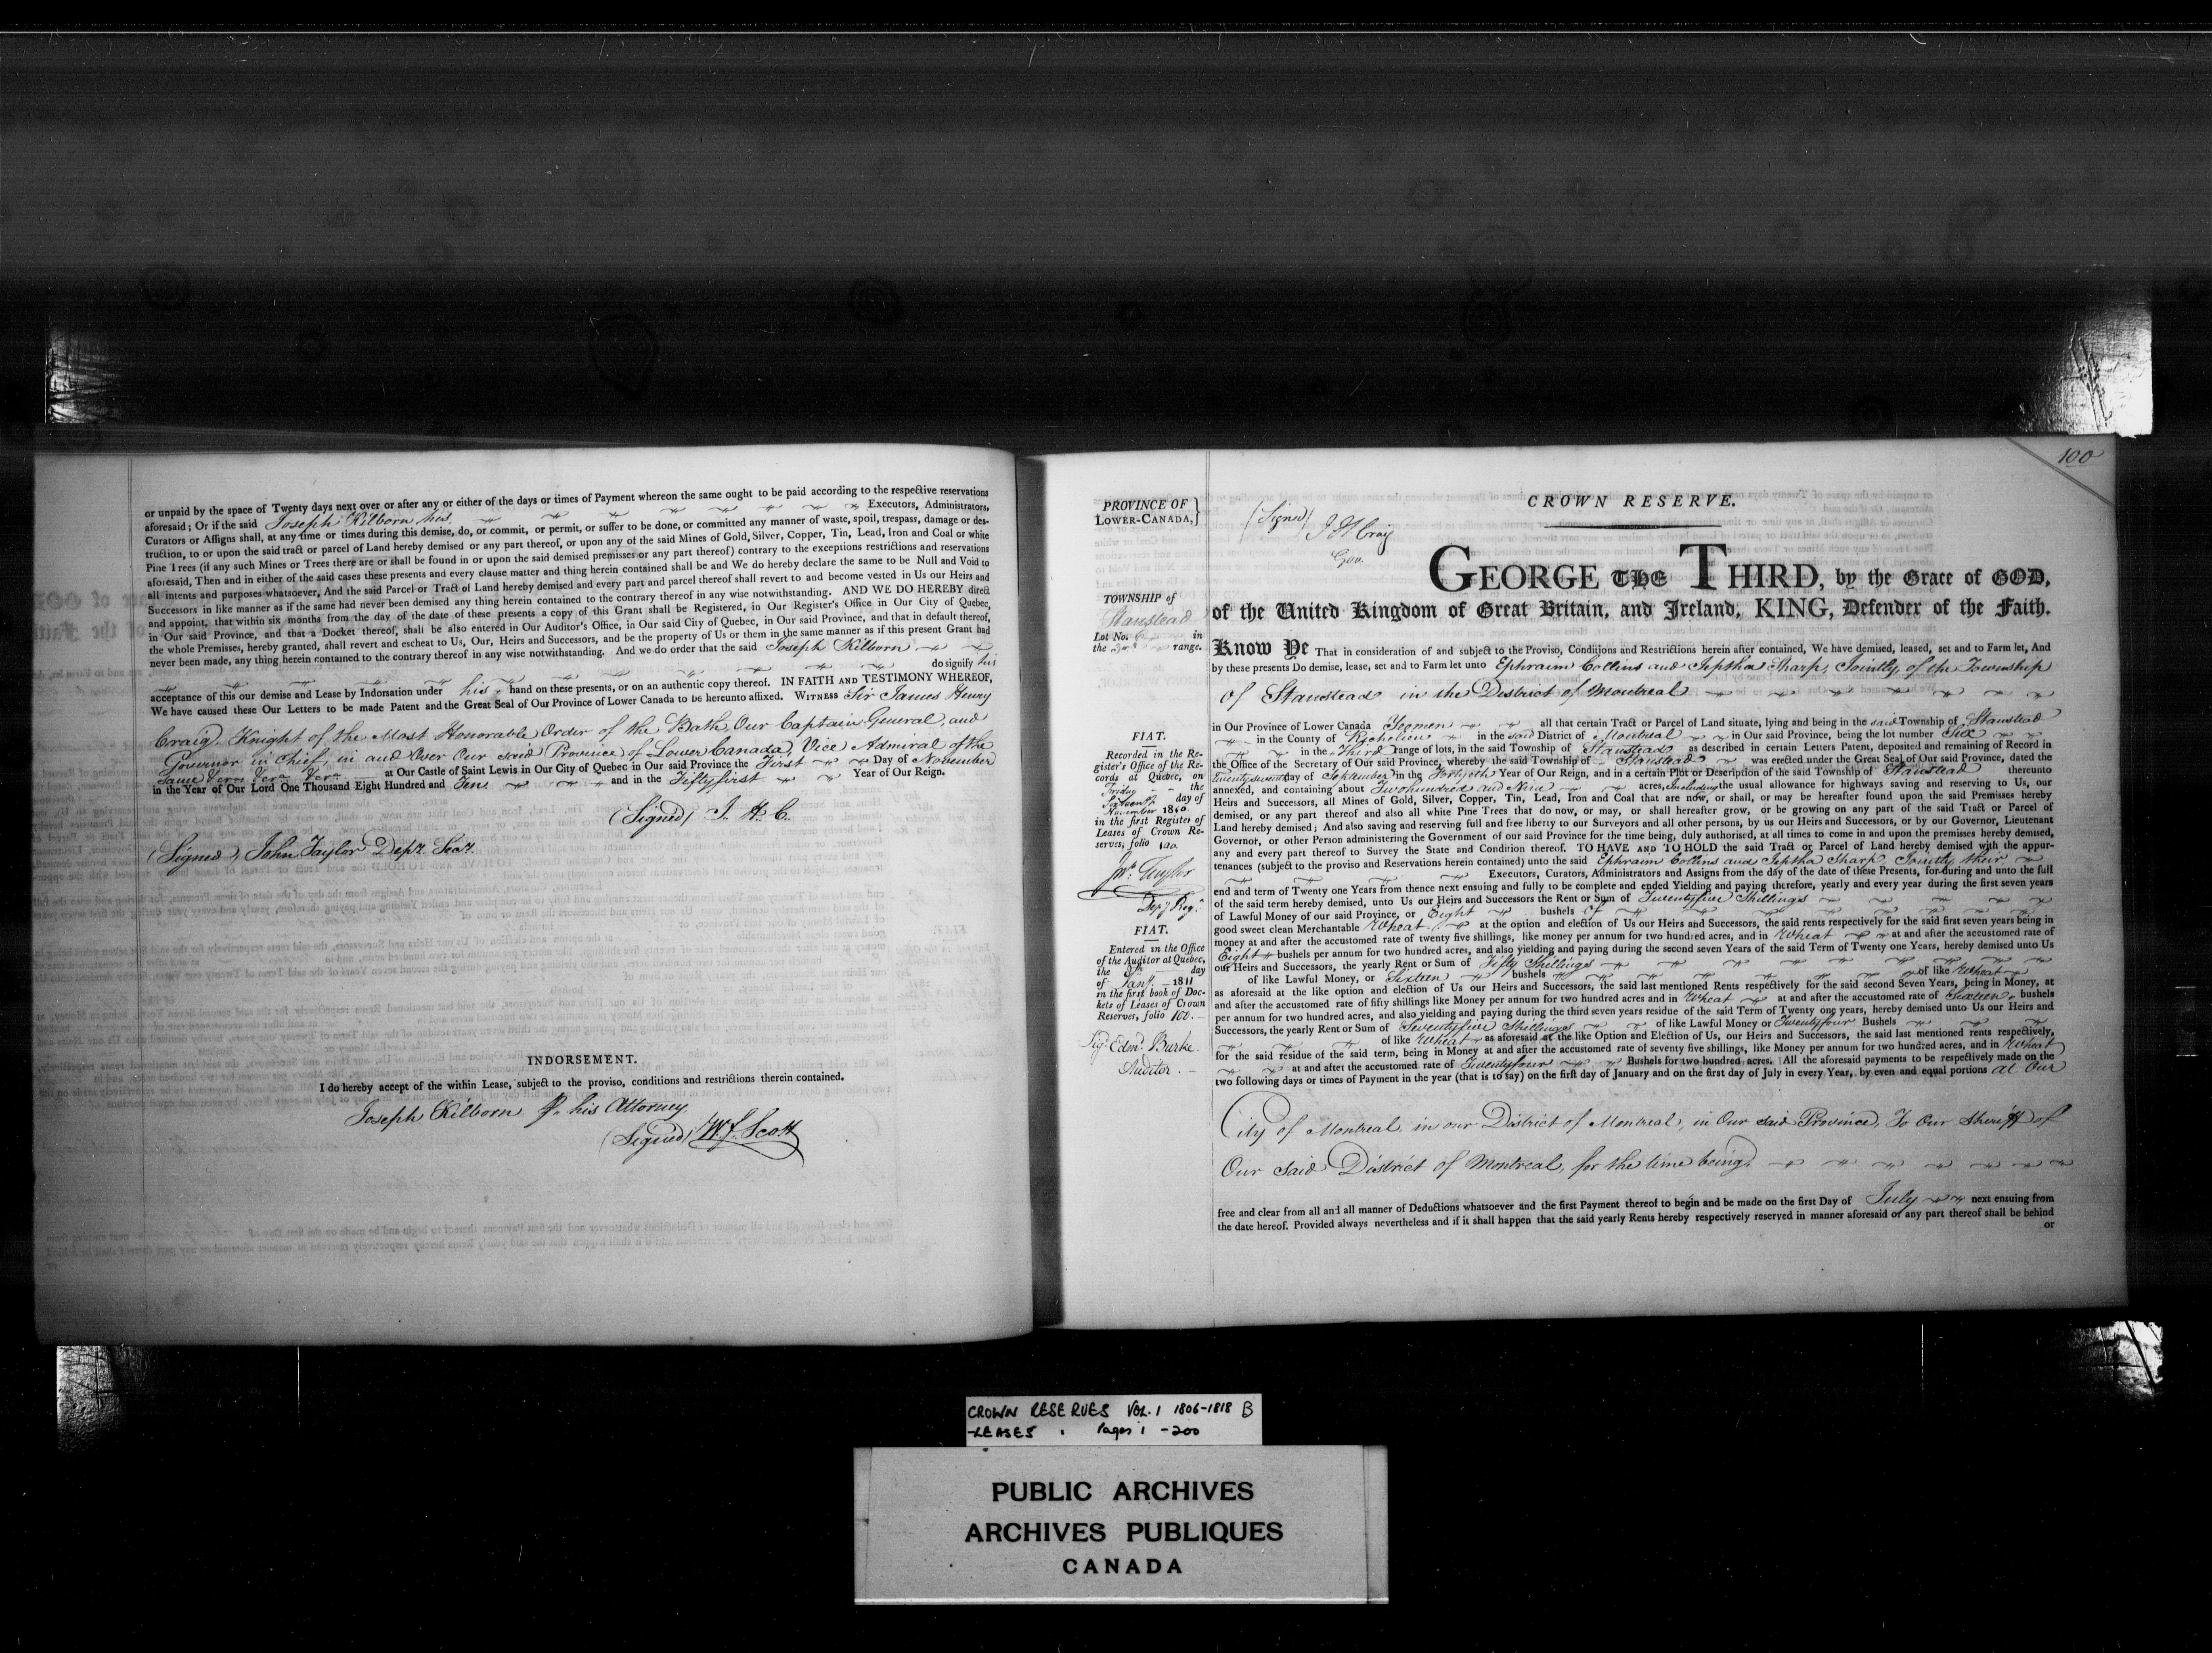 or unpaid by the space of Twenty days next over or after any or either of the days or times of Payment whereon the same ought to be paid according to the respective reservations
aforesaid; Or if the said Joseph Kilborn his Executors, Administrators,
Curators or Assigns shall, at any time or times during this demise, do, or commit, or permit, or suffer to be done, or committed any manner of waste, spoil, trespass, damage or des-
truction, to or upon the said tract or parcel of Land hereby demised or any part thereof, or upon any of the said Mines of Gold, Silver, Copper, Tin, Lead, Iron and Coal or white
Pine Trees (if any such Mines or Trees there are or shall be found in or upon the said demised premises or any part thereof) contrary to the exceptions restrictions and reservations
aforesaid, Then and in either of the said cases these presents and every clause matter and thing herein contained shall be and We do hereby declare the same to be Null and Void to
all intents and purposes whatsoever, And the said Parcel or Tract of Land hereby demised and every part and parcel thereof shall revert to and become vested in Us our Heirs and
Successors in like manner as if the same had never been demised any thing herein contained to the contrary thereof in any wise notwithstanding. AND WE DO HEREBY direct
and appoint, that within six months from the day of the date of these presents a copy of this Grant shall be Registered, in Our Register's Office in Our City of Quebec,
in Our said Province, and that a Docket thereof, shall be also entered in Our Auditor's Office, in Our said City of Quebec, in Our said Province, and that in default thereof,
the whole Premises, hereby granted, shall revert and escheat to Us, Our, Heirs and Successors, and be the property of Us or them in the same manner as if this present Grant had
never been made, any thing herein contained to the contrary thereof in any wise notwithstanding. And we do order that the said Joseph Kilborn
do signify his
acceptance of this our demise and Lease by Indorsation under his hand on these presents, or on an authentic copy thereof. IN FAITH AND TESTIMONY WHEREOF,
We have caused these Our Letters to be made Patent and the Great Seal of Our Province of Lower Canada to be hereunto affixed. WITNESS Sir James Henry
Craig, Knight of the Most Honorable Order of the Bath, Our Captain General, and
Governor in Chief, in and Over Our said Province of Lower Canada, Vice Admiral of the
same &c. &c. &c. at Our Castle of Saint Lewis in Our City of Quebec in Our said Province the First Day of November
in the Year of Our Lord One Thousand Eight Hundred and Ten and in the Fiftyfirst Year of Our Reign.
(Signed) J. H. C.
(Signed) John Taylor Depy. Secy.
INDORSEMENT.
I do hereby accept of the within Lease, subject to the proviso, conditions and restrictions therein contained.
Joseph Kilborn Pr. his Attorney
(Signed) W. J. Scott
100
PROVINCE OF
LOWER-CANADA,}
(Signed) J H Craig
Gov.
CROWN RESERVE.
TOWNSHIP of
Stanstead
Lot No. 6 in
the 3rd range.
GEORGE THE THIRD, by the Grace of GOD,
of the United Kingdom of Great Britain, and Ireland, KING, Defender of the Faith.
Know Ye That in consideration of and subject to the Proviso, Conditions and Restrictions herein after contained, We have demised, leased, set and to Farm let, And
by these presents Do demise, lease, set and to Farm let unto Ephraim Collins and Jeptha Sharp, Jointly, of the Township
of Stanstead in the District of Montreal
in Our Province of Lower Canada Yeomen all that certain Tract or Parcel of Land situate, lying and being in the said Township of Stanstead
in the County of Richelieu in the said District of Montreal in Our said Province, being the lot number Six
in the Third range of lots, in the said Township of Stanstead as described in certain Letters Patent, deposited and remaining of Record in
the Office of the Secretary of Our said Province, whereby the said Township of Stanstead was erected under the Great Seal of Our said Province, dated the
Twentyseventh day of September in the Fortieth Year of Our Reign, and in a certain Plot or Description of the said Township of Stanstead thereunto
annexed, and containing about Twohundred and Nine acres, Including the usual allowance for highways saving and reserving to Us, our
Heirs and Successors, all Mines of Gold, Silver, Copper, Tin, Lead, Iron and Coal that are now, or shall, or may be hereafter found upon the said Premisses hereby
demised, or any part thereof and also all white Pine Trees that do now, or may, or shall hereafter grow, or be growing on any part of the said Tract or Parcel of
Land hereby demised; And also saving and reserving full and free liberty to our Surveyors and all other persons, by us our Heirs and Successors, or by our Governor, Lieutenant
Governor, or other Person administering the Government of our said Province for the time being, duly authorised, at all times to come in and upon the premises hereby demised,
any and every part thereof to Survey the State and Condition thereof. TO HAVE AND TO HOLD the said Tract or Parcel of Land hereby demised with the appur-
tenances (subject to the proviso and Reservations herein contained) unto the said Ephraim Collins and Jeptha Sharp Jointly their
Executors, Curators, Administrators and Assigns from the day of the date of these Presents, for during and unto the full
end and term of Twenty one Years from thence next ensuing and fully to be complete and ended Yielding and paying therefore, yearly and every year during the first seven years
of the said term hereby demised, unto Us our Heirs and Successors the Rent or Sum of Twentyfive Shillings
of Lawful Money of our said Province, or Eight bushels of
good sweet clean Merchantable Wheat at the option and election of Us our Heirs and Successors, the said rents respectively for the said first seven years being in
money at and after the accustomed rate of twenty five shillings, like money per annum for two hundred acres, and in Wheat at and after the accustomed rate of
Eight bushels per annum for two hundred acres, and also yielding and paying during the second seven Years of the said Term of Twenty one Years, hereby demised unto Us
our Heirs and Successors, the yearly Rent or Sum of Fifty Shillings
of like Lawful Money, or Sixteen bushels of like Wheat
as aforesaid at the like option and election of Us our Heirs and Successors, the said last mentioned Rents respectively for the said second Seven Years, being in Money, at
and after the accustomed rate of fifty shillings like Money per annum for two hundred acres and in Wheat at and after the accustomed rate of Sixteen bushels
per annum for two hundred acres, and also yielding and paying during the third seven years residue of the said Term of Twenty one years, hereby demised unto Us our Heirs and
Successors, the yearly Rent or Sum of Seventyfive Shillings of like Lawful Money or Twentyfour Bushels
of like Wheat as aforesaid at the like Option and Election of Us, our Heirs and Successors, the said last mentioned rents respectively,
for the said residue of the said term, being in Money at and after the accustomed rate of seventy five shillings, like Money per annum for two hundred acres, and in Wheat
at and after the accustomed rate of Twentyfour Bushels for two hundred acres. All the aforesaid payments to be respectively made on the
two following days or times of Payment in the year (that is to say) on the first day of January and on the first day of July in every Year, by even and equal portions at Our
City of Montreal in our District of Montreal, in Our said Province, To Our Sheriff of
Our said District of Montreal, for the time being
free and clear from all and all manner of Deductions whatsoever and the first Payment thereof to begin and be made on the first Day of July next ensuing from
the date hereof. Provided always nevertheless and if it shall happen that the said yearly Rents hereby respectively reserved in manner aforesaid or any part thereof shall be behind
or
FIAT.
Recorded in the Re-
gister's Office of the Re-
cords at Quebec, on
Friday the
Sixteenth day of
November 1810
in the first Register of
Leases of Crown Re-
serves, folio 100.
Jno. Taylor
Depy Regr.
FIAT.
Entered in the Office
of the Auditor at Quebec,
the 9th day
of Jany. 1811
in the first book of Doc-
kets of Leases of Crown
Reserves, folio 100.
Sigd. Edmd. Burke
Auditor.
CROWN RESERVES VOL. 1 1806-1818 B
-LEASES Pages 1 - 200
PUBLIC ARCHIVES
ARCHIVES PUBLIQUES
CANADA